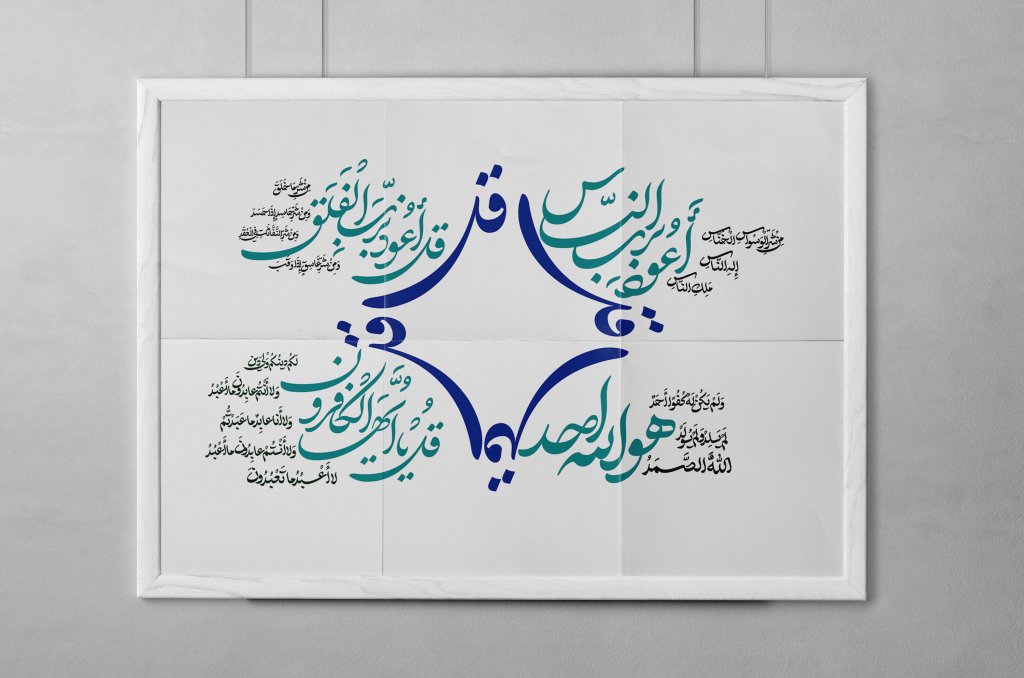 قل
قل
قل
قل
أعوذ برب الناس
من شر الوسواس الخناس
إله الناس
ملك الناس
قل أعوذ برب الفلق
من شر ما خلق
ومن شر حاسد إذا حسد
ومن شر النفاثات في العقد
ومن شر غاسق إذا وقب
هو الله احد
ولم يكن له كفوا أحد
لم يلد ولم يولد
الله الصمد
قل يا أيها الكافرون
لكم دينكم ولي دين
ولا أنتم عابدون ما أعبد
ولا أنا عابد ما عبدتم
ولا أنتم عابدون ما أعبد
لا أعبد ما تعبدون